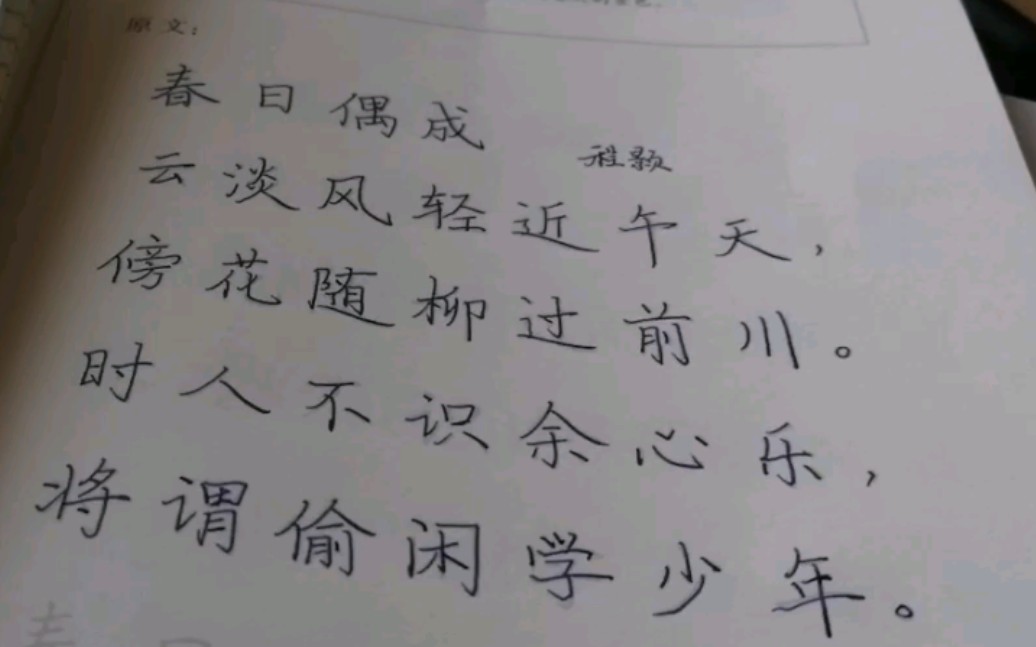 原文：
春日偶成
程颢
云淡风轻近午天，
傍花随柳过前川。
时人不识余心乐，
将谓偷闲学少年。